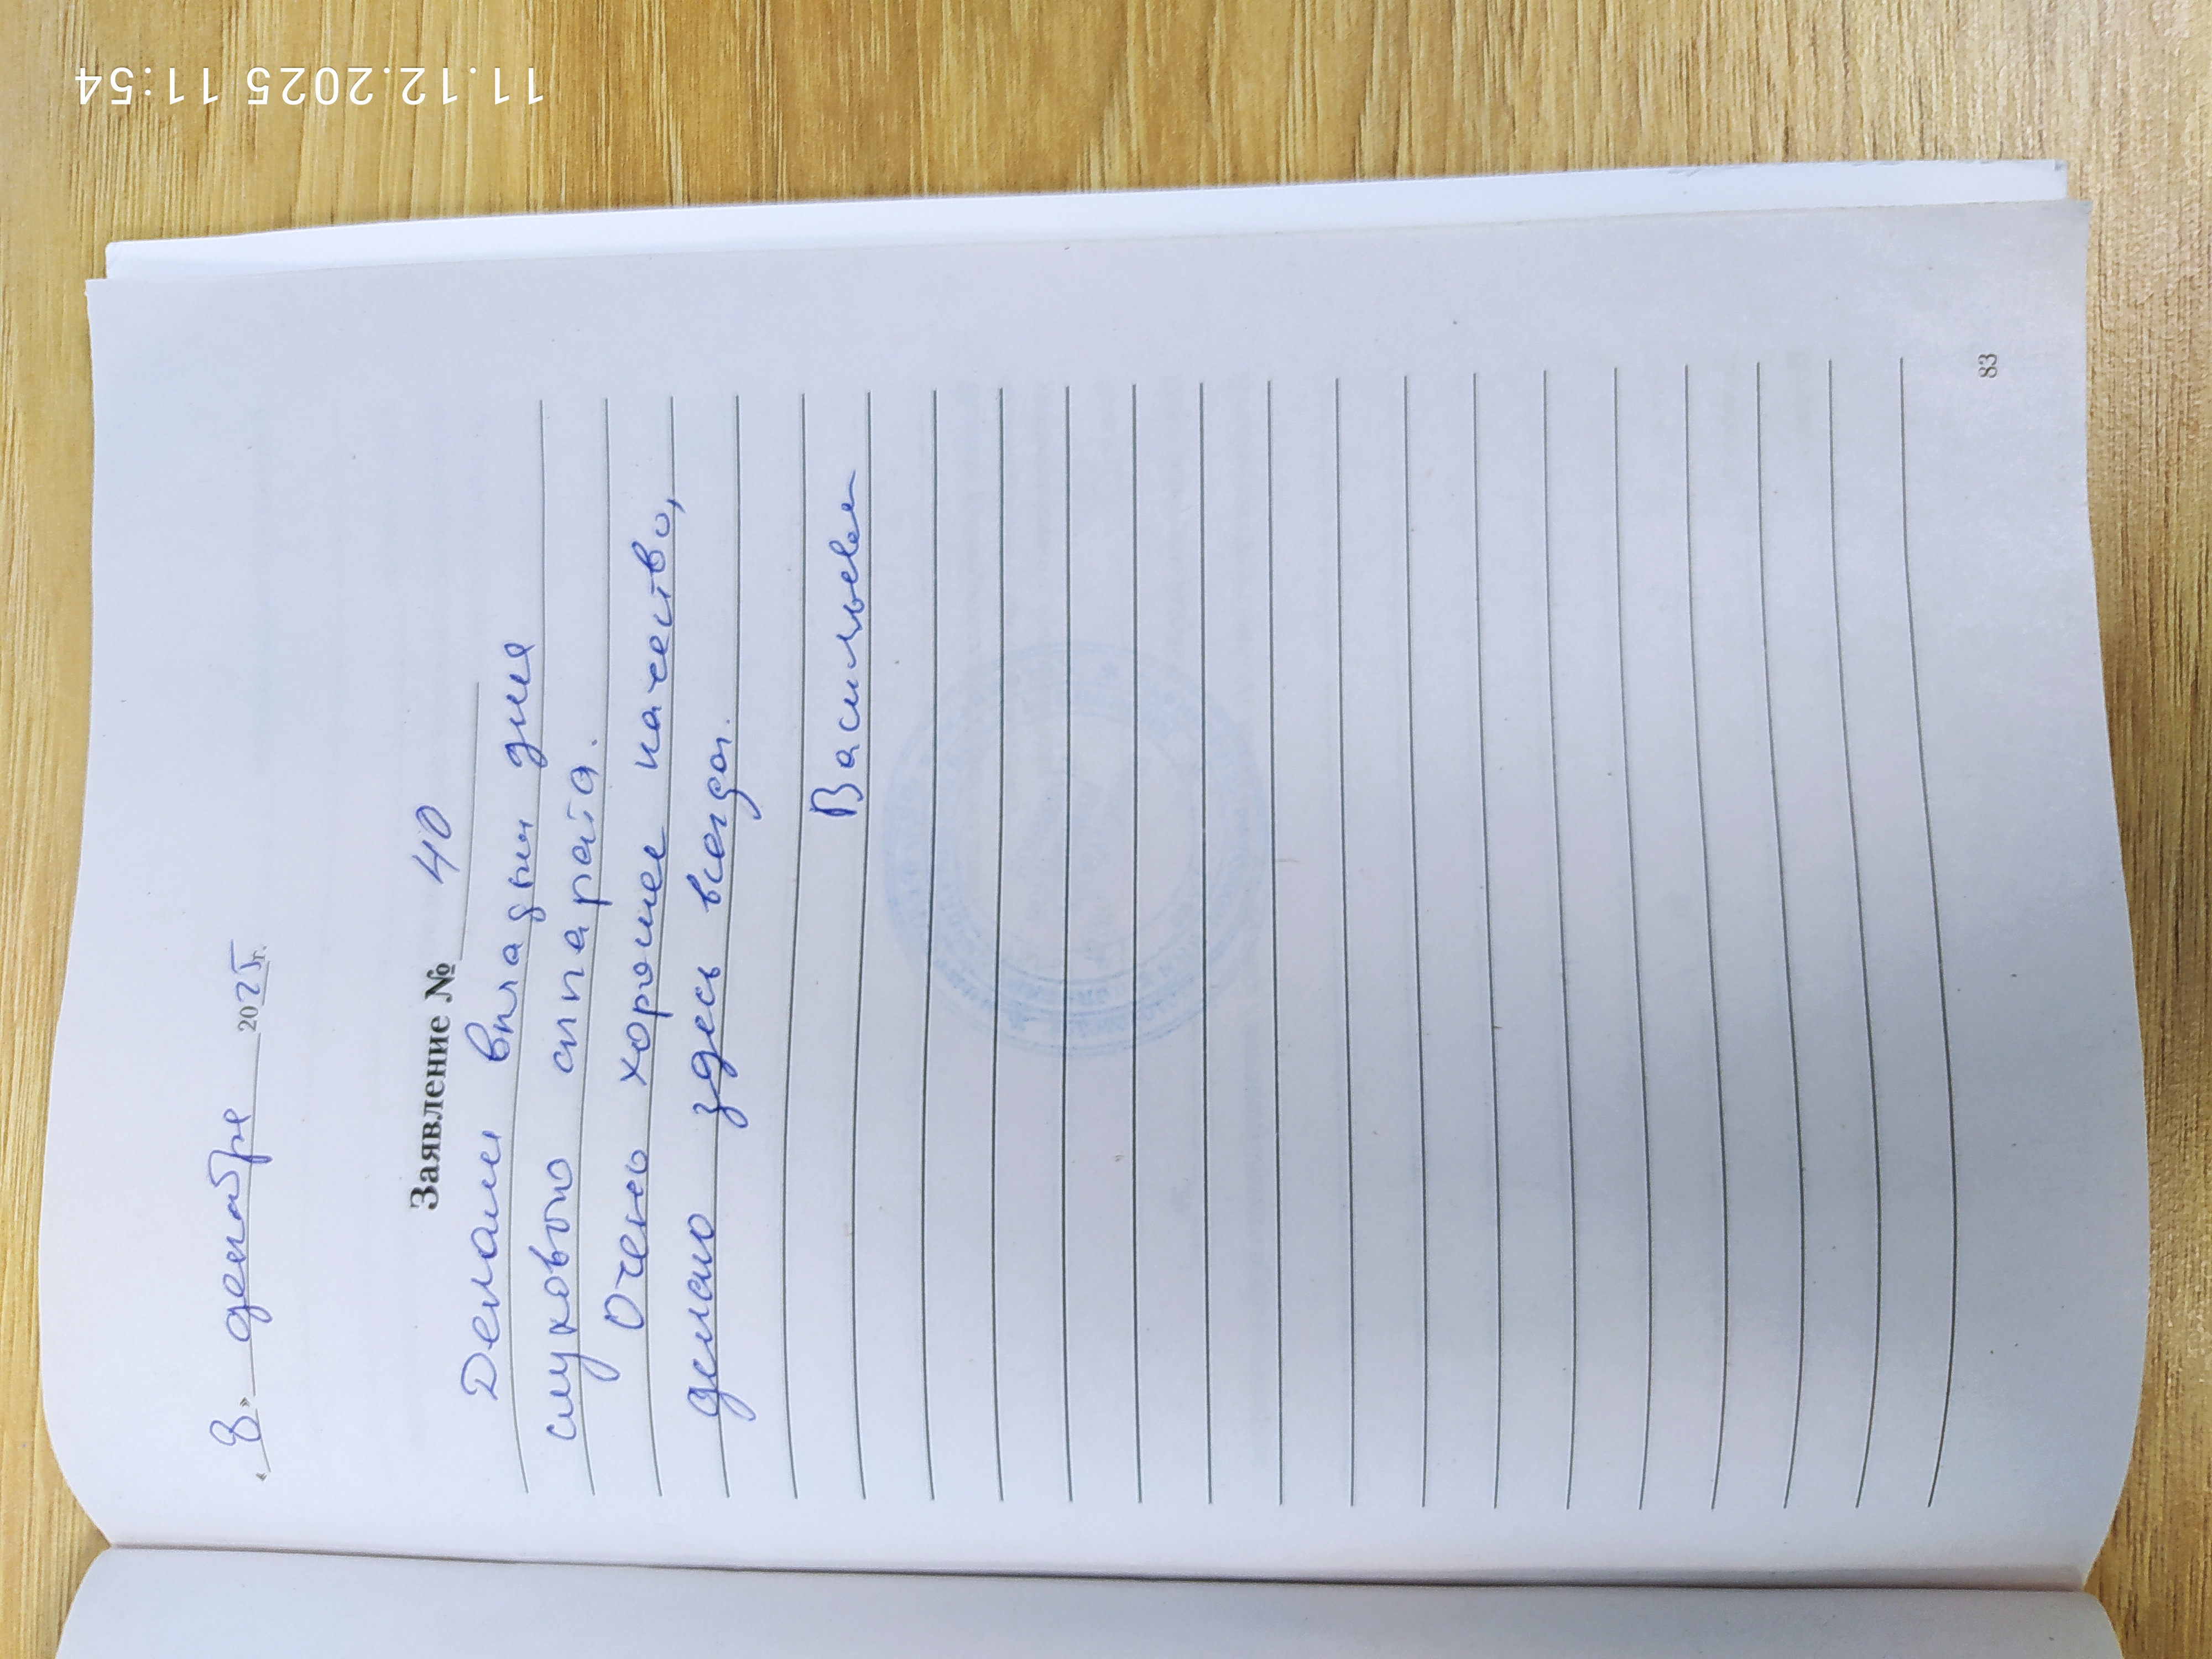 11.12.2025 11:54
« 8 » декабря 2025 г.
Заявление № 40
Делали вкладыш для
слухового аппарата.
Очень хорошее качество,
делаю здесь всегда.
Васильева
83